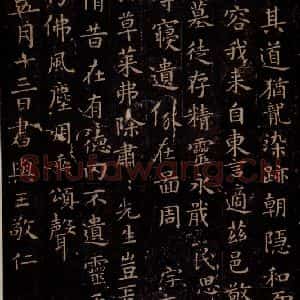 其道猶龍染跡朝隱和而
容我来自東言適茲邑敬
墓徒存精靈永戢民思
寢遺像在啚周 宇
草萊弗除肅〻先生豈焉
惰昔在有德罔不遺靈天
佛風塵用垂頌聲
五月十三日書與王敬仁
Shufawang.CN